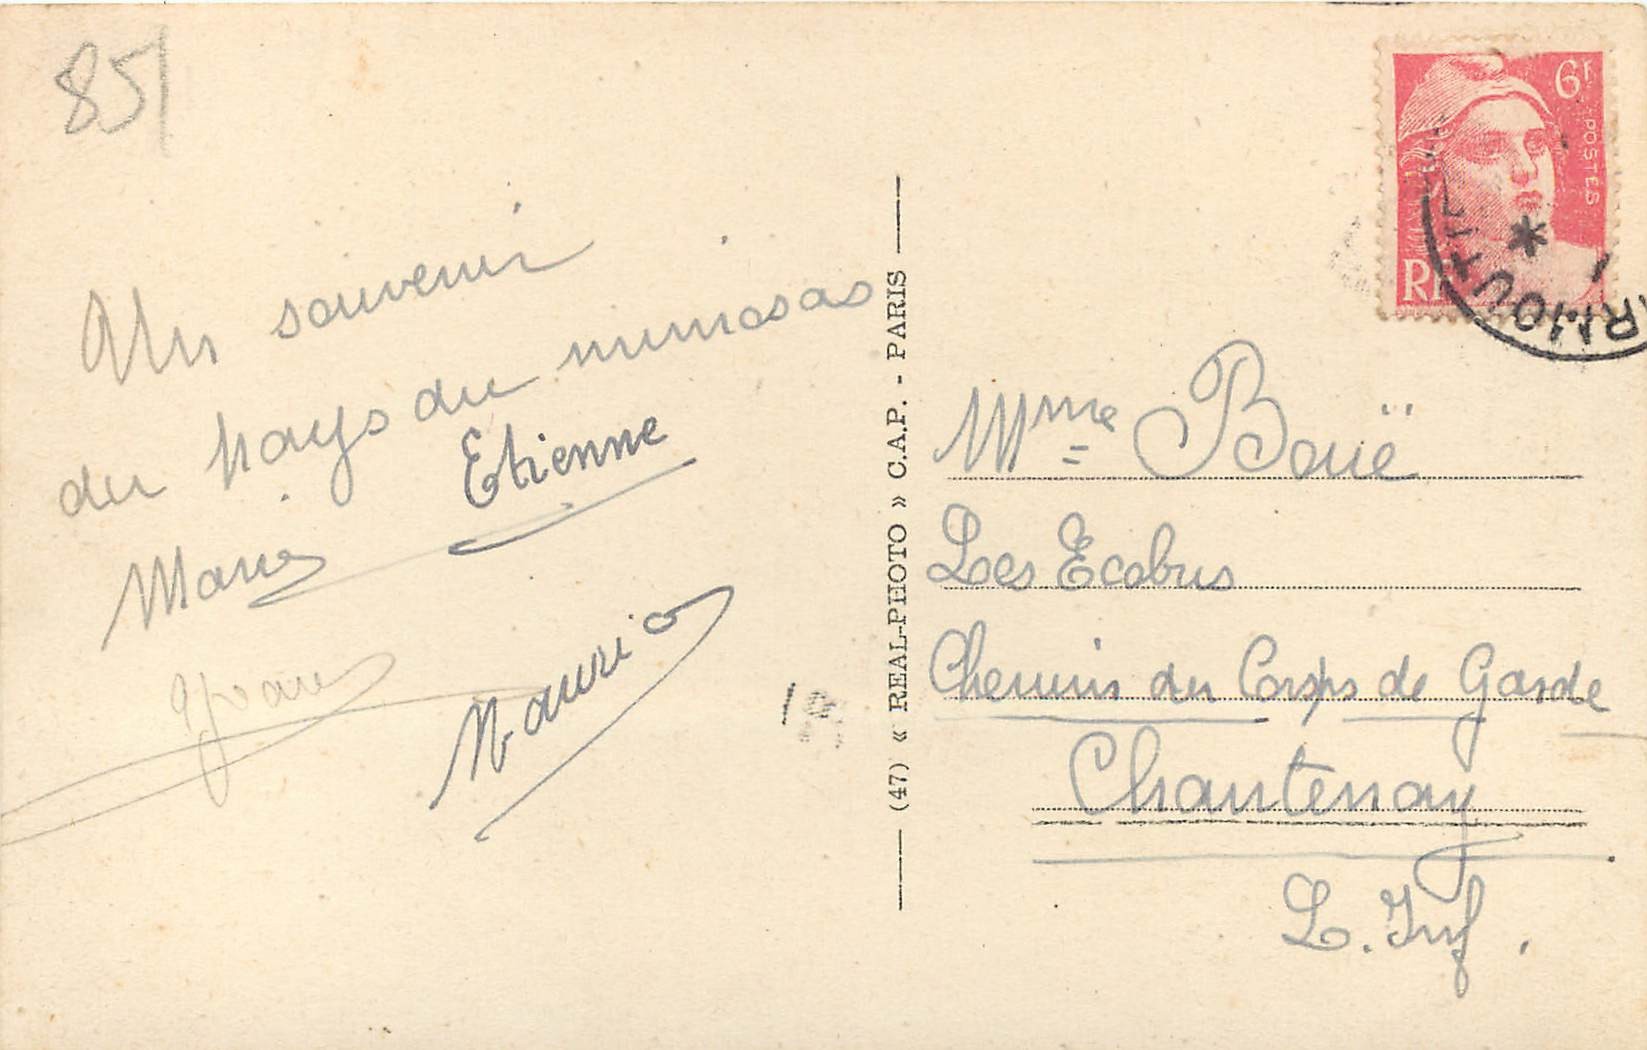 85
Un souvenir
du pays du mimosas
Etienne
Marie
Maurice
(47) « REAL-PHOTO » C.A.P. - PARIS
6F
POSTES
RF
Mme Bouë
Les Ecobus
Chemin du Corps de Garde
Chantenay
L. Inf.